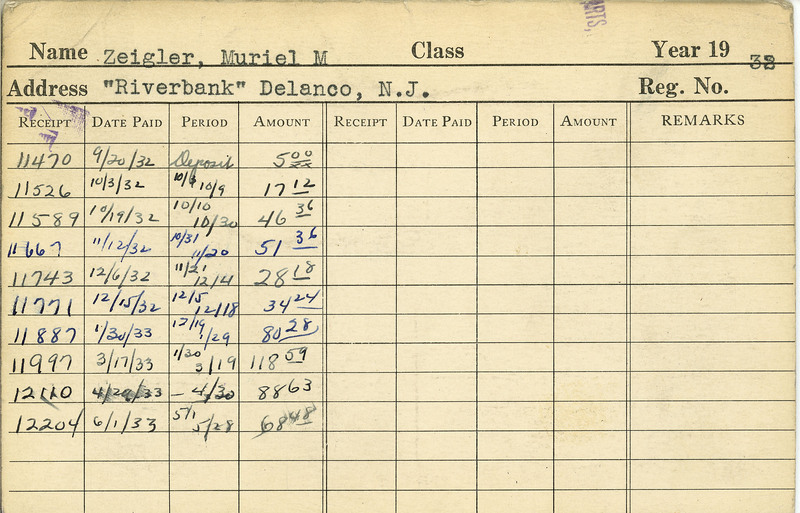 ARTS,
Name Zeigler, Muriel M Class Year 19 32
Address "Riverbank" Delanco, N.J. Reg. No.
RECEIPT DATE PAID PERIOD AMOUNT RECEIPT DATE PAID PERIOD AMOUNT REMARKS
11470 9/20/32 Deposit 5 00
11526 10/3/32 10/3 10/9 17 12
11589 10/19/32 10/10 10/30 46 36
11667 11/12/32 10/31 11/20 51 36
11743 12/6/32 11/21 12/4 28 18
11771 12/15/32 12/5 12/18 34 24
11887 1/30/33 12/19 1/29 80 28
11997 3/17/33 1/30 3/19 118 59
12110 4/29/33 - 4/30 88 63
12204 6/1/33 5/1 5/28 68 48